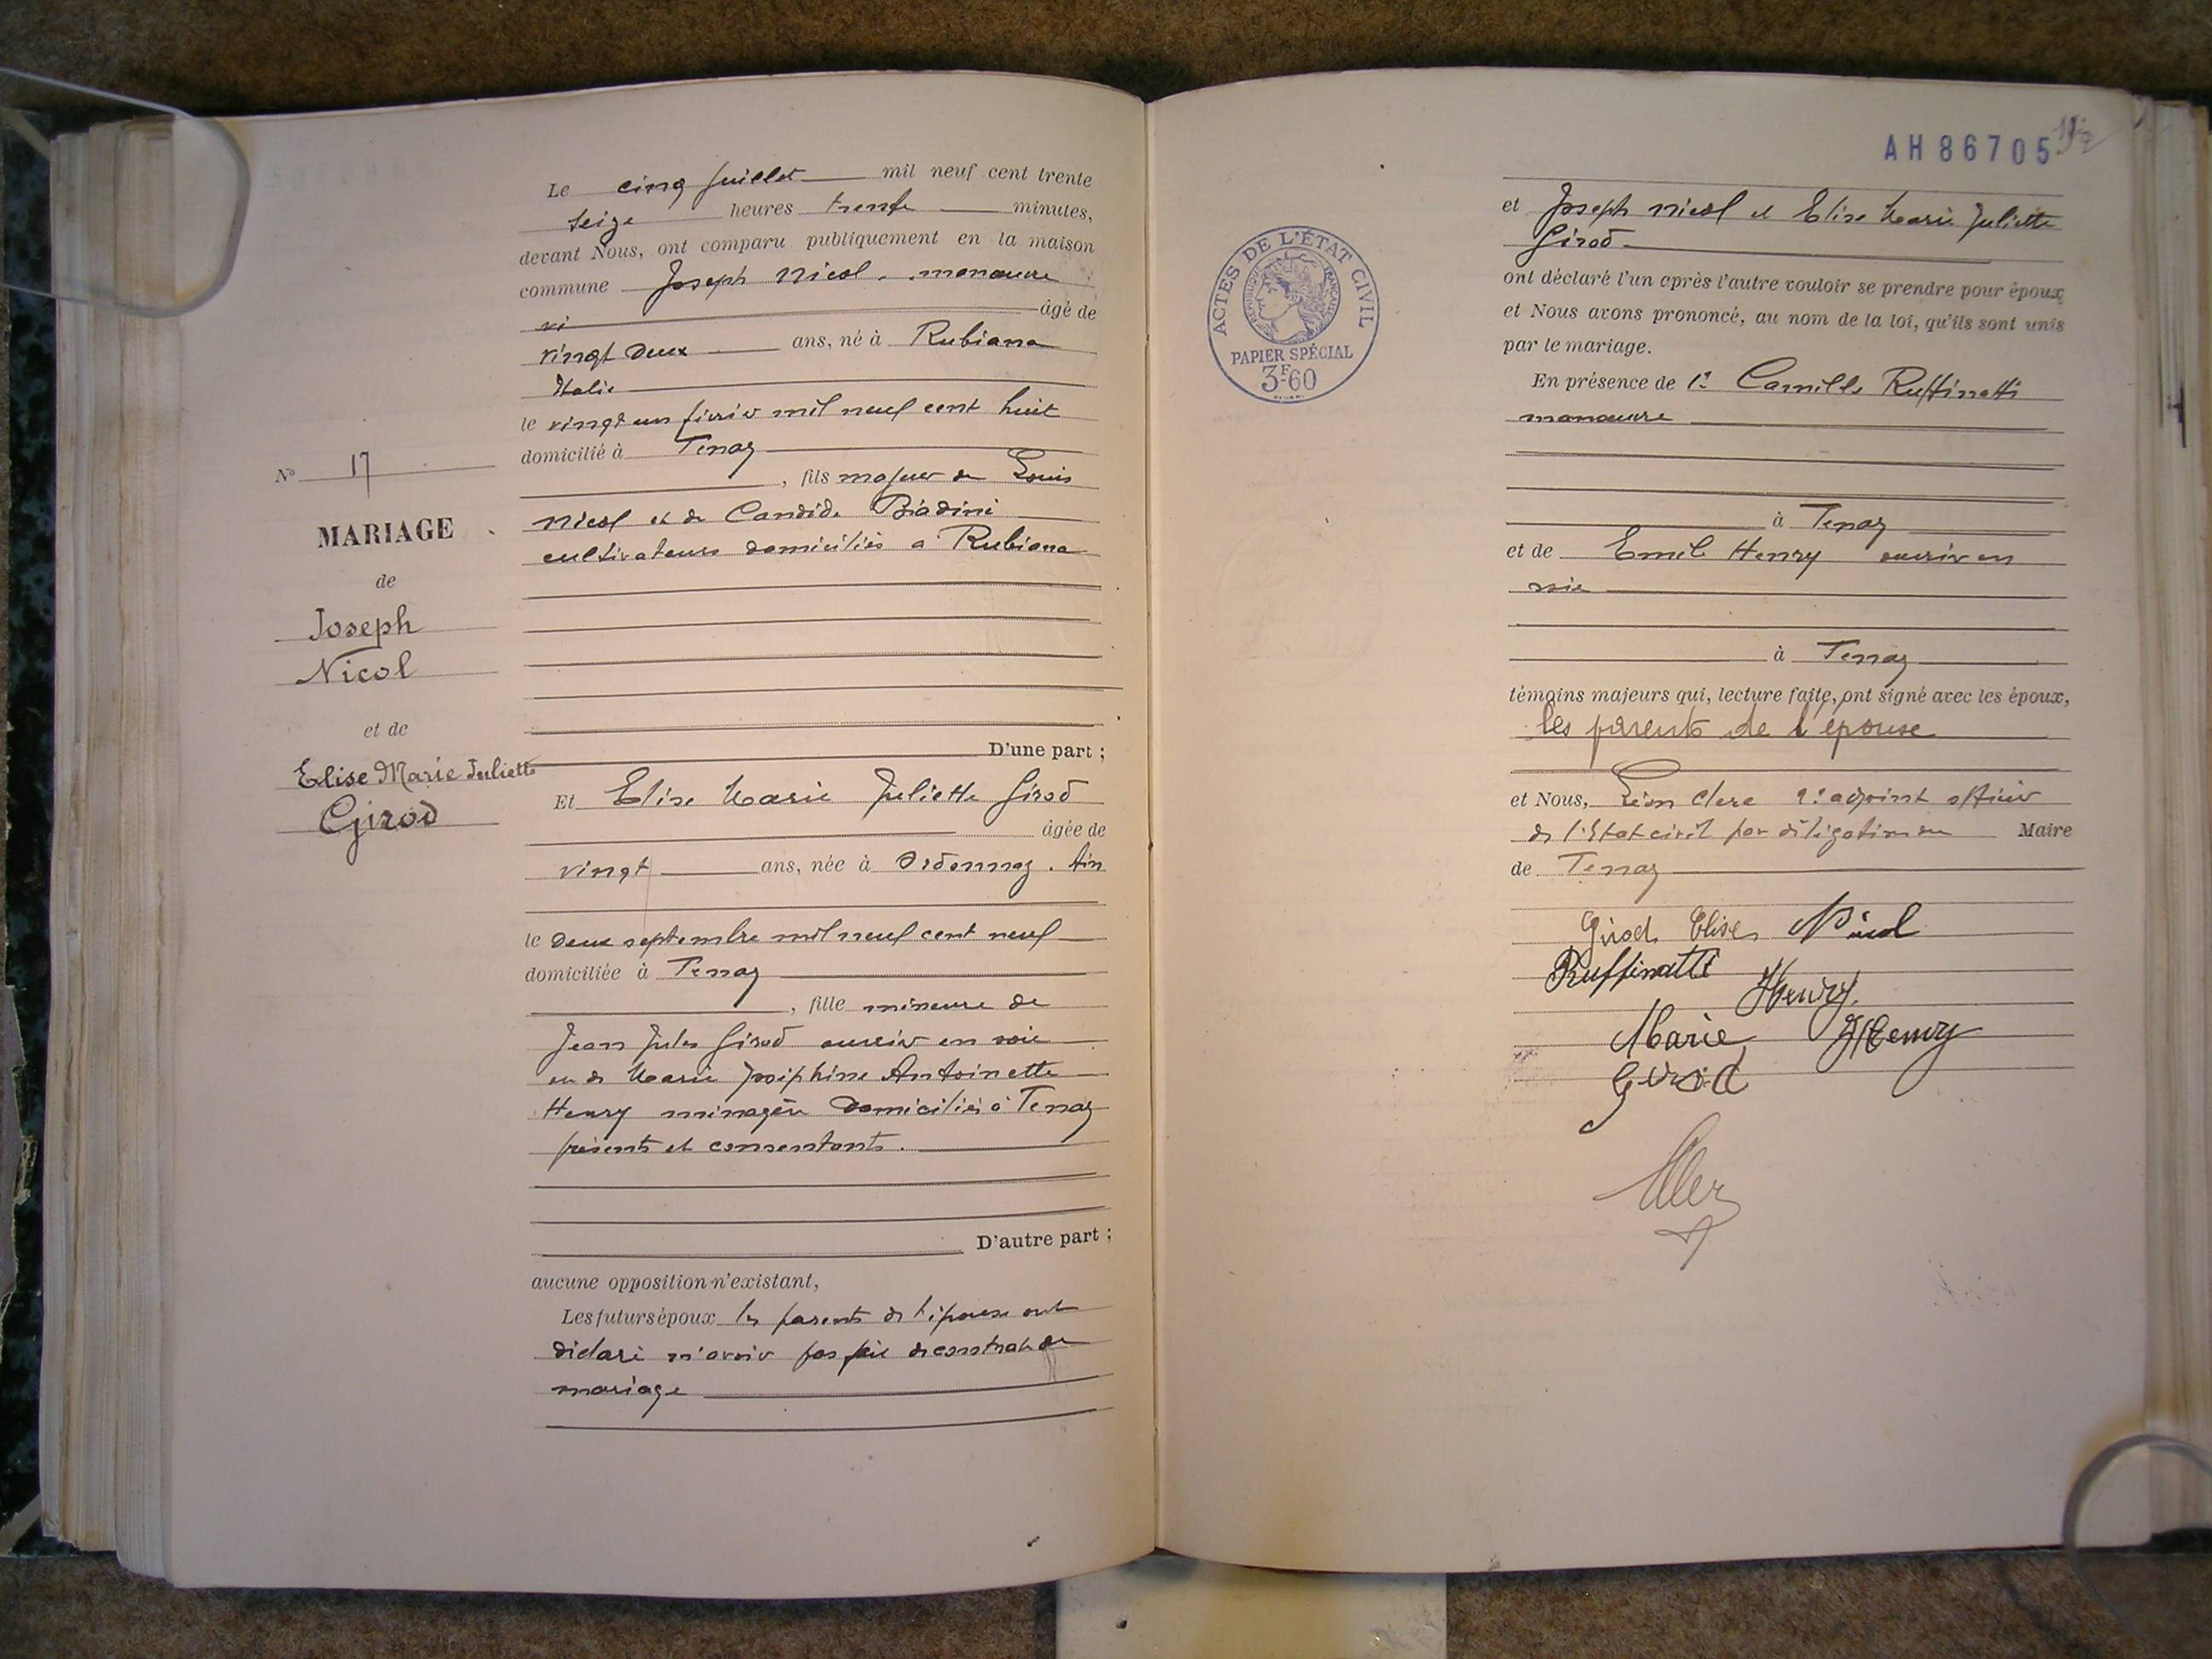 Le cinq juillet mil neuf cent trente
seize heures trente minutes,
devant Nous, ont comparu publiquement en la maison
commune Joseph Nicol, manœuvre
âgé de
vingt deux ans, né à Rubiana
Italie
le vingt un février mil neuf cent huit
domicilié à Tenay
, fils majeur de Louis
Nicol et de Candide Biadini
cultivateurs domiciliés à Rubiana
D'une part ;
Et Elise Marie Juliette Girod
âgée de
vingt ans, née à Ordonnaz. Ain
le deux septembre mil neuf cent neuf
domiciliée à Tenay
, fille mineure de
Jean Jules Girod ouvrier en soie
et de Marie Joséphine Antoinette
Henry ménagère domiciliés à Tenay
présents et consentants.
D'autre part ;
aucune opposition n'existant,
Les futurs époux les parents de l'épouse ont
déclaré n'avoir pas fait de contrat de
mariage
N° 17
MARIAGE
de
Joseph
Nicol
et de
Elise Marie Juliette
Girod
AH 86705
ACTES DE L'ÉTAT CIVIL
RÉPUBLIQUE FRANÇAISE
PAPIER SPÉCIAL
3F.60
et Joseph Nicol et Elise Marie Juliette
Girod
ont déclaré l'un après l'autre vouloir se prendre pour époux
et Nous avons prononcé, au nom de la loi, qu'ils sont unis
par le mariage.
En présence de 1° Camille Ruffinatti
manœuvre
à Tenay
et de Emile Henry ouvrier en
soie
à Tenay
témoins majeurs qui, lecture faite, ont signé avec les époux,
les parents de l'épouse
et Nous, Léon Clerc 2e adjoint officier
de l'Etat civil par délégation du Maire
de Tenay
Girod Elise Nicol
Ruffinatti
Henry
Marie Henry
Girod